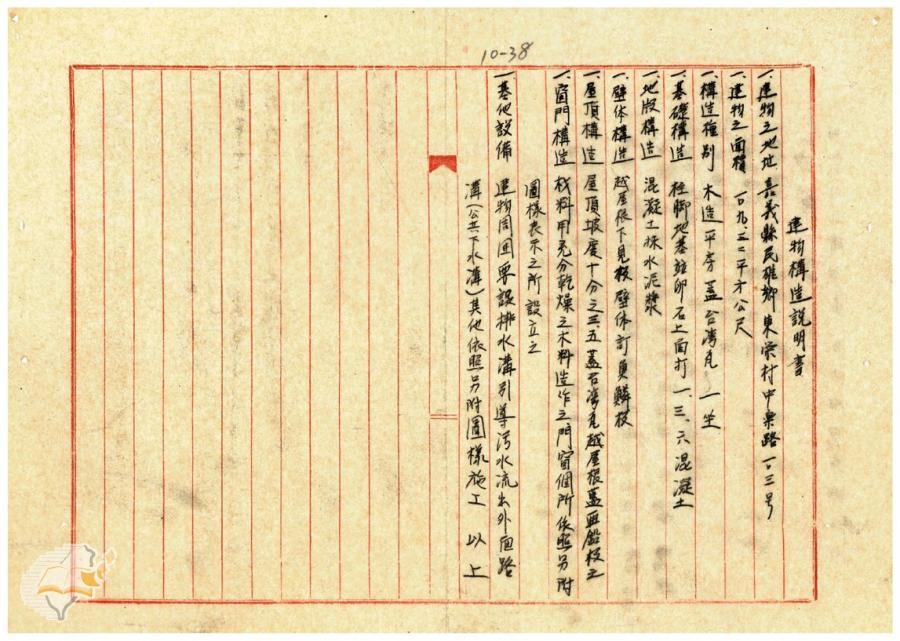 10-38
建物構造説明書
一、建物之地址 嘉義縣民雄鄉東栄村中栗路一〇三号
一、建物之面積 一〇九、三二平方公尺
一、構造種別 木造平房蓋台灣瓦 一坐
一、基礎構造 柱脚地基 卵石上面打一、三、六混凝土
一、地版構造 混凝土抹水泥漿
一、壁体構造 越屋根下見板壁体訂魚鱗板
一、屋頂構造 屋頂坡度十分之三五蓋台灣瓦越屋根蓋亜鉛板之
一、窗門構造 材料用充分乾燥之木料造作之門窗個所依照另附
圖樣表示之所設立之
一、其他設備 建物周囲要設排水溝引導污水流出外面路
溝(公共下水溝)其他依照另附圖樣施工 以上